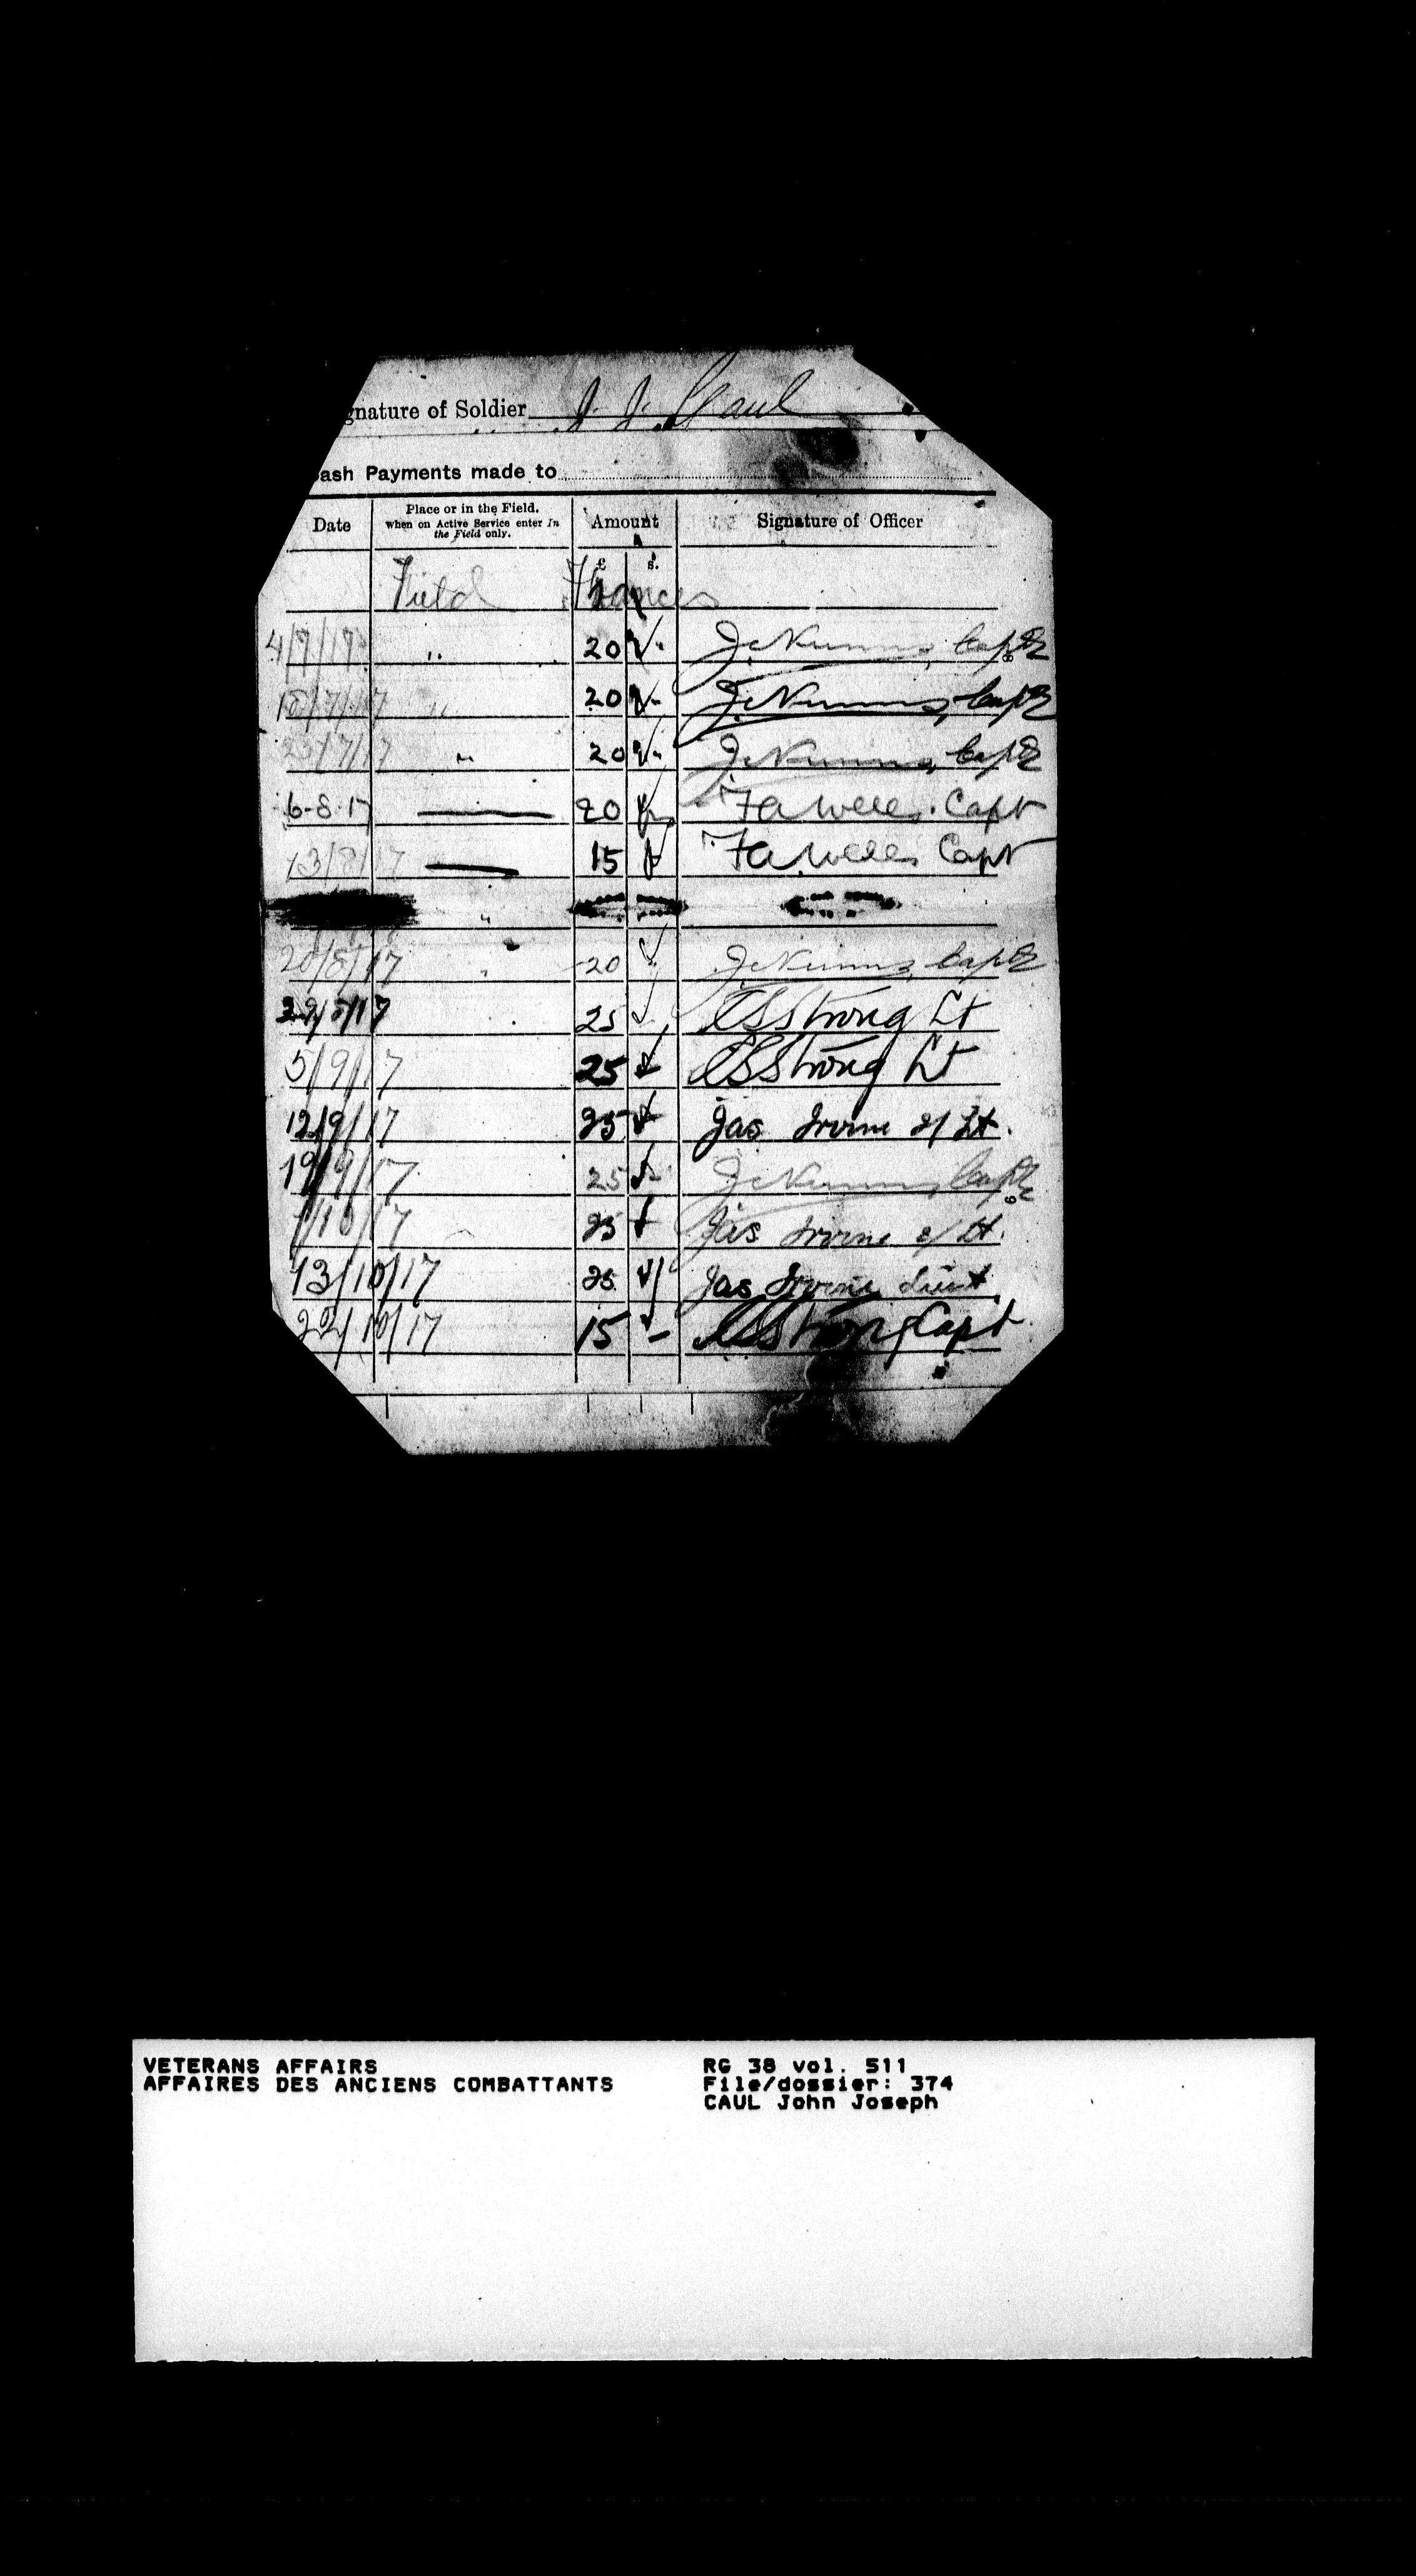 gnature of Soldier J. J. Caul
ash Payments made to
Date Place or in the Field. When on Active Service enter In the Field only. Amount Signature of Officer
£ s.
Field Francs
4/7/17 " 20 J. Nunns, Capt
18/7/17 " 20 J. Nunns, Capt
23/7/17 " 20 J. Nunns, Capt
6-8-17 20 Capt
13/8/17 15 Capt
"
20/8/17 " 20 J. Nunns, Capt
29/8/17 25 CSStrong Lt
5/9/17 25 CSStrong Lt
12/9/17 25 Jas Irvine 2/Lt.
19/9/17 25 J. Nunns, Capt
1/10/17 25 Jas Irvine 2/Lt.
13/10/17 25 Jas Irvine Lieut
22/10/17 15 CSStrong Capt
VETERANS AFFAIRS RG 38 vol. 511
AFFAIRES DES ANCIENS COMBATTANTS File/dossier: 374
CAUL John Joseph